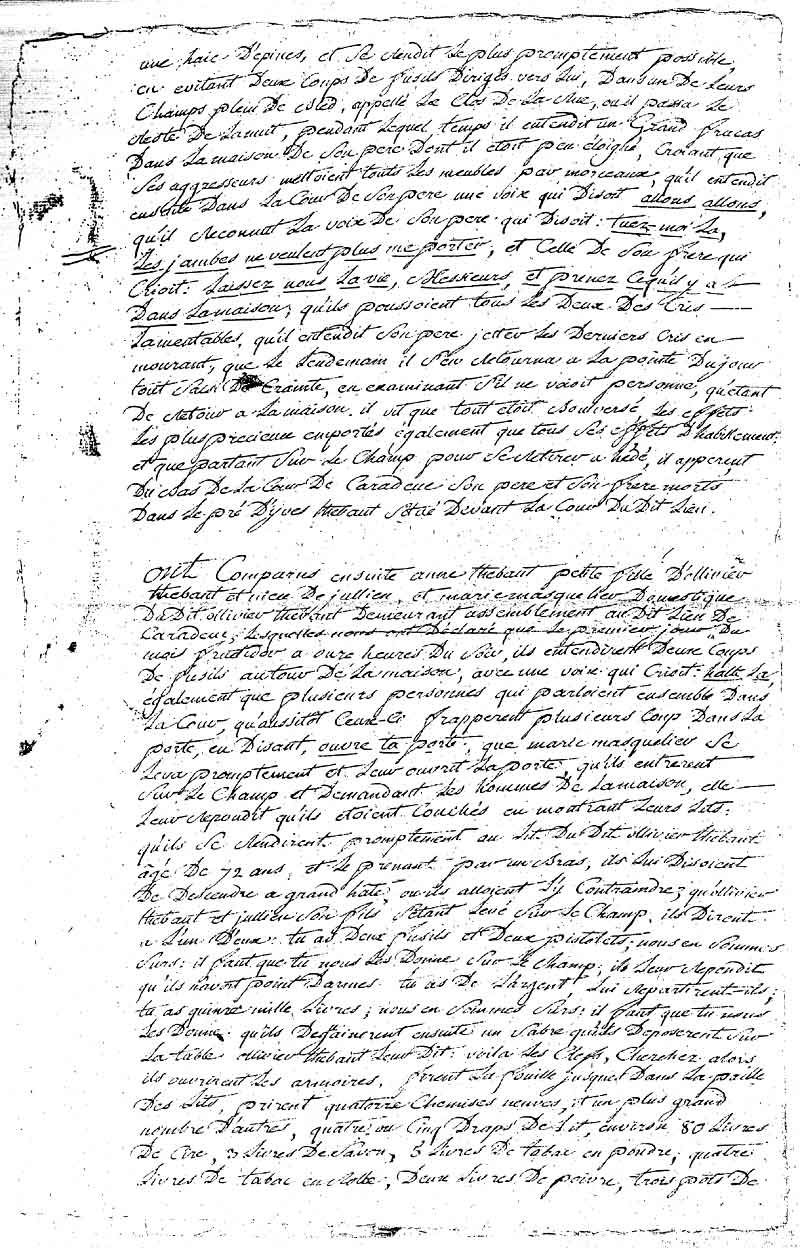 une haie D'epines, et se rendit le plus promptement possible,
en evitant Deux Coups De fusils Dirigés vers lui, Dans un De leurs
Champs plein De bled, appellé Le Clos De La Rue, ou il passa Le
Reste De la nuit, pendant Lequel temps il entendit un Grand fracas
Dans La maison De Son pere Dont il etoit peu eloigné, Croiant que
Ses aggresseurs mettoient touts Les meubles par morceaux, qu'il entendit
ensuite Dans La Cour De Son pere une voix qui Disoit allons, allons,
qu'il Reconnut La voix De Son pere qui Disoit: tuez-moi La,
Les jambes ne veulent plus me porter, et Celle De Son frere qui
Crioit: Laissez nous La vie, Messieurs, et prenez Ce qu'il y a
Dans La maison; qu'ils poussoient tous Les Deux Des Cris
Lamentables, qu'il entendit Son pere jetter Les Derniers Cris en
mourant, que Le Lendemain il S'en Retourna a La pointe Du jour
tout Saisi De Crainte, en examinant S'il ne voioit personne, qu'etant
De Retour a La maison, il vit que tout etoit Bouversé, Les effets
Les plus precieux emportés également que tous Ses effets D'habillement,
et que partant Sur Le Champ pour Se Retirer a hédé, il apperçut
Du bas De La Cour De Caradeuc Son pere et Son frere morts
Dans Le pré D'yves thebaut Situé Devant La Cour Du Dit Lieu.
Ont Comparus ensuite anne thebaut petite fille D'ollivier
thebaut et niece De jullien, et marie masquelier Domestique
Du Dit ollivier thebaut Demeurant assemblement au Dit Lieu De
Caradeuc; Lesquelles nous ont Déclaré que Le premier jour Du
mois fructidor a onze heures Du Soir, ils entendirent Deux Coups
De fusils autour De La maison, avec une voix qui Crioit: halte La,
également que plusieurs personnes qui parloient ensemble Dans
La Cour, qu'aussitot Ceux-Ci frapperent plusieurs Coup Dans La
porte, en Disant, ouvre ta porte, que marie masquelier Se
Leva promptement et Leur ouvrit La porte, qu'ils entrerent
Sur Le Champ et Demandant Les hommes De La maison, elle
Leur Repondit qu'ils étoient Couchés en montrant Leurs Lits.
qu'ils Se Rendirent promptement au Lit Du Dit ollivier thebaut
âgé De 72 ans, et Le prenant par un Bras, ils Lui Disoient
De Descendre a grand hate, ou ils alloient L'y Contraindre; qu'ollivier
thebaut et jullien Son fils S'étant Levé Sur Le Champ, ils Dirent
a L'un D'eux: tu as Deux fusils et Deux pistolets, nous en Sommes
Surs: il faut que tu nous Les Donne Sur Le Champ; ils Leur Repondit
qu'ils n'avoit point D'armes. tu as De L'argent Lui Repartirent-ils;
tu as quinze mille Livres; nous en Sommes Surs: il faut que tu nous
Les Donne: qu'ils Degainerent ensuite un Sabre qu'ils Deposerent Sur
La table ollivier thebaut Leur Dit: voila Les Clefs, Cherchez. alors
ils ouvrirent Les armoires, firent La fouille jusque Dans La paille
Des Lits, prirent quatorze Chemises neuves, un plus grand
nombre D'autres, quatre ou Cinq Draps De Lit, environ 80 Livres
De Cire, 3 Livres De Savon, 5 Livres De tabac en poudre, quatre
Livres De tabac en Rolle, Deux Livres De poivre, trois pots De